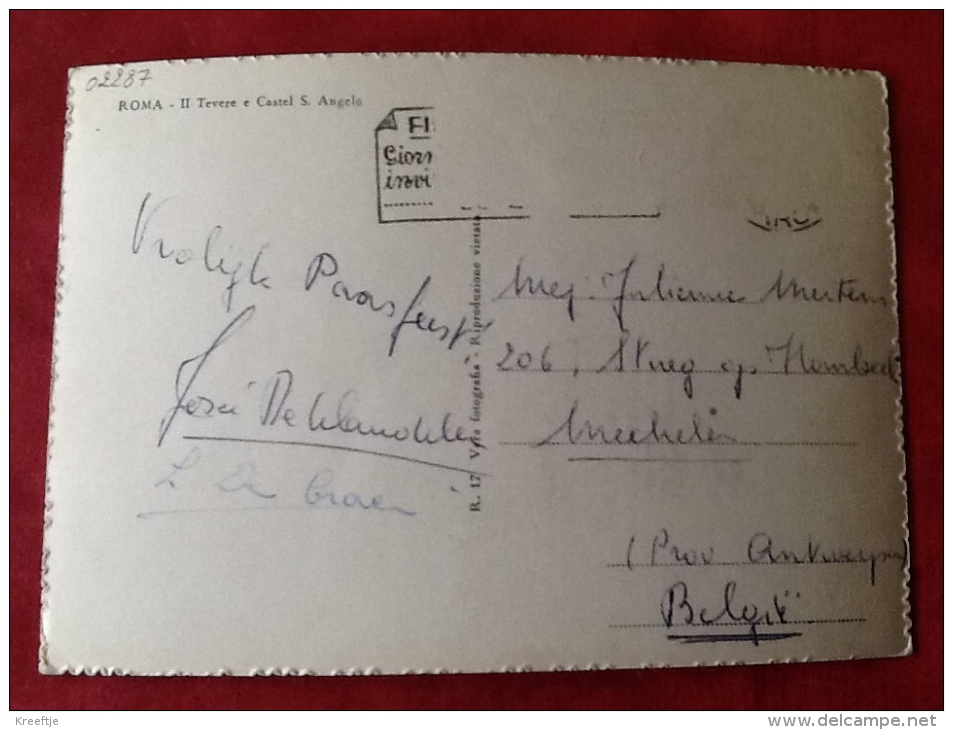 02287
ROMA - Il Tevere e Castel S. Angelo
FI
Giorn
invi
Vrolijk Paasfeest
José
R. 17 Vera fotografia - Riproduzione vietata
Mej. Julienne Mertens
206, Stweg op Hombeek
Mechelen
(Prov Antwerpen)
België
Kreeftje
www.delcampe.net